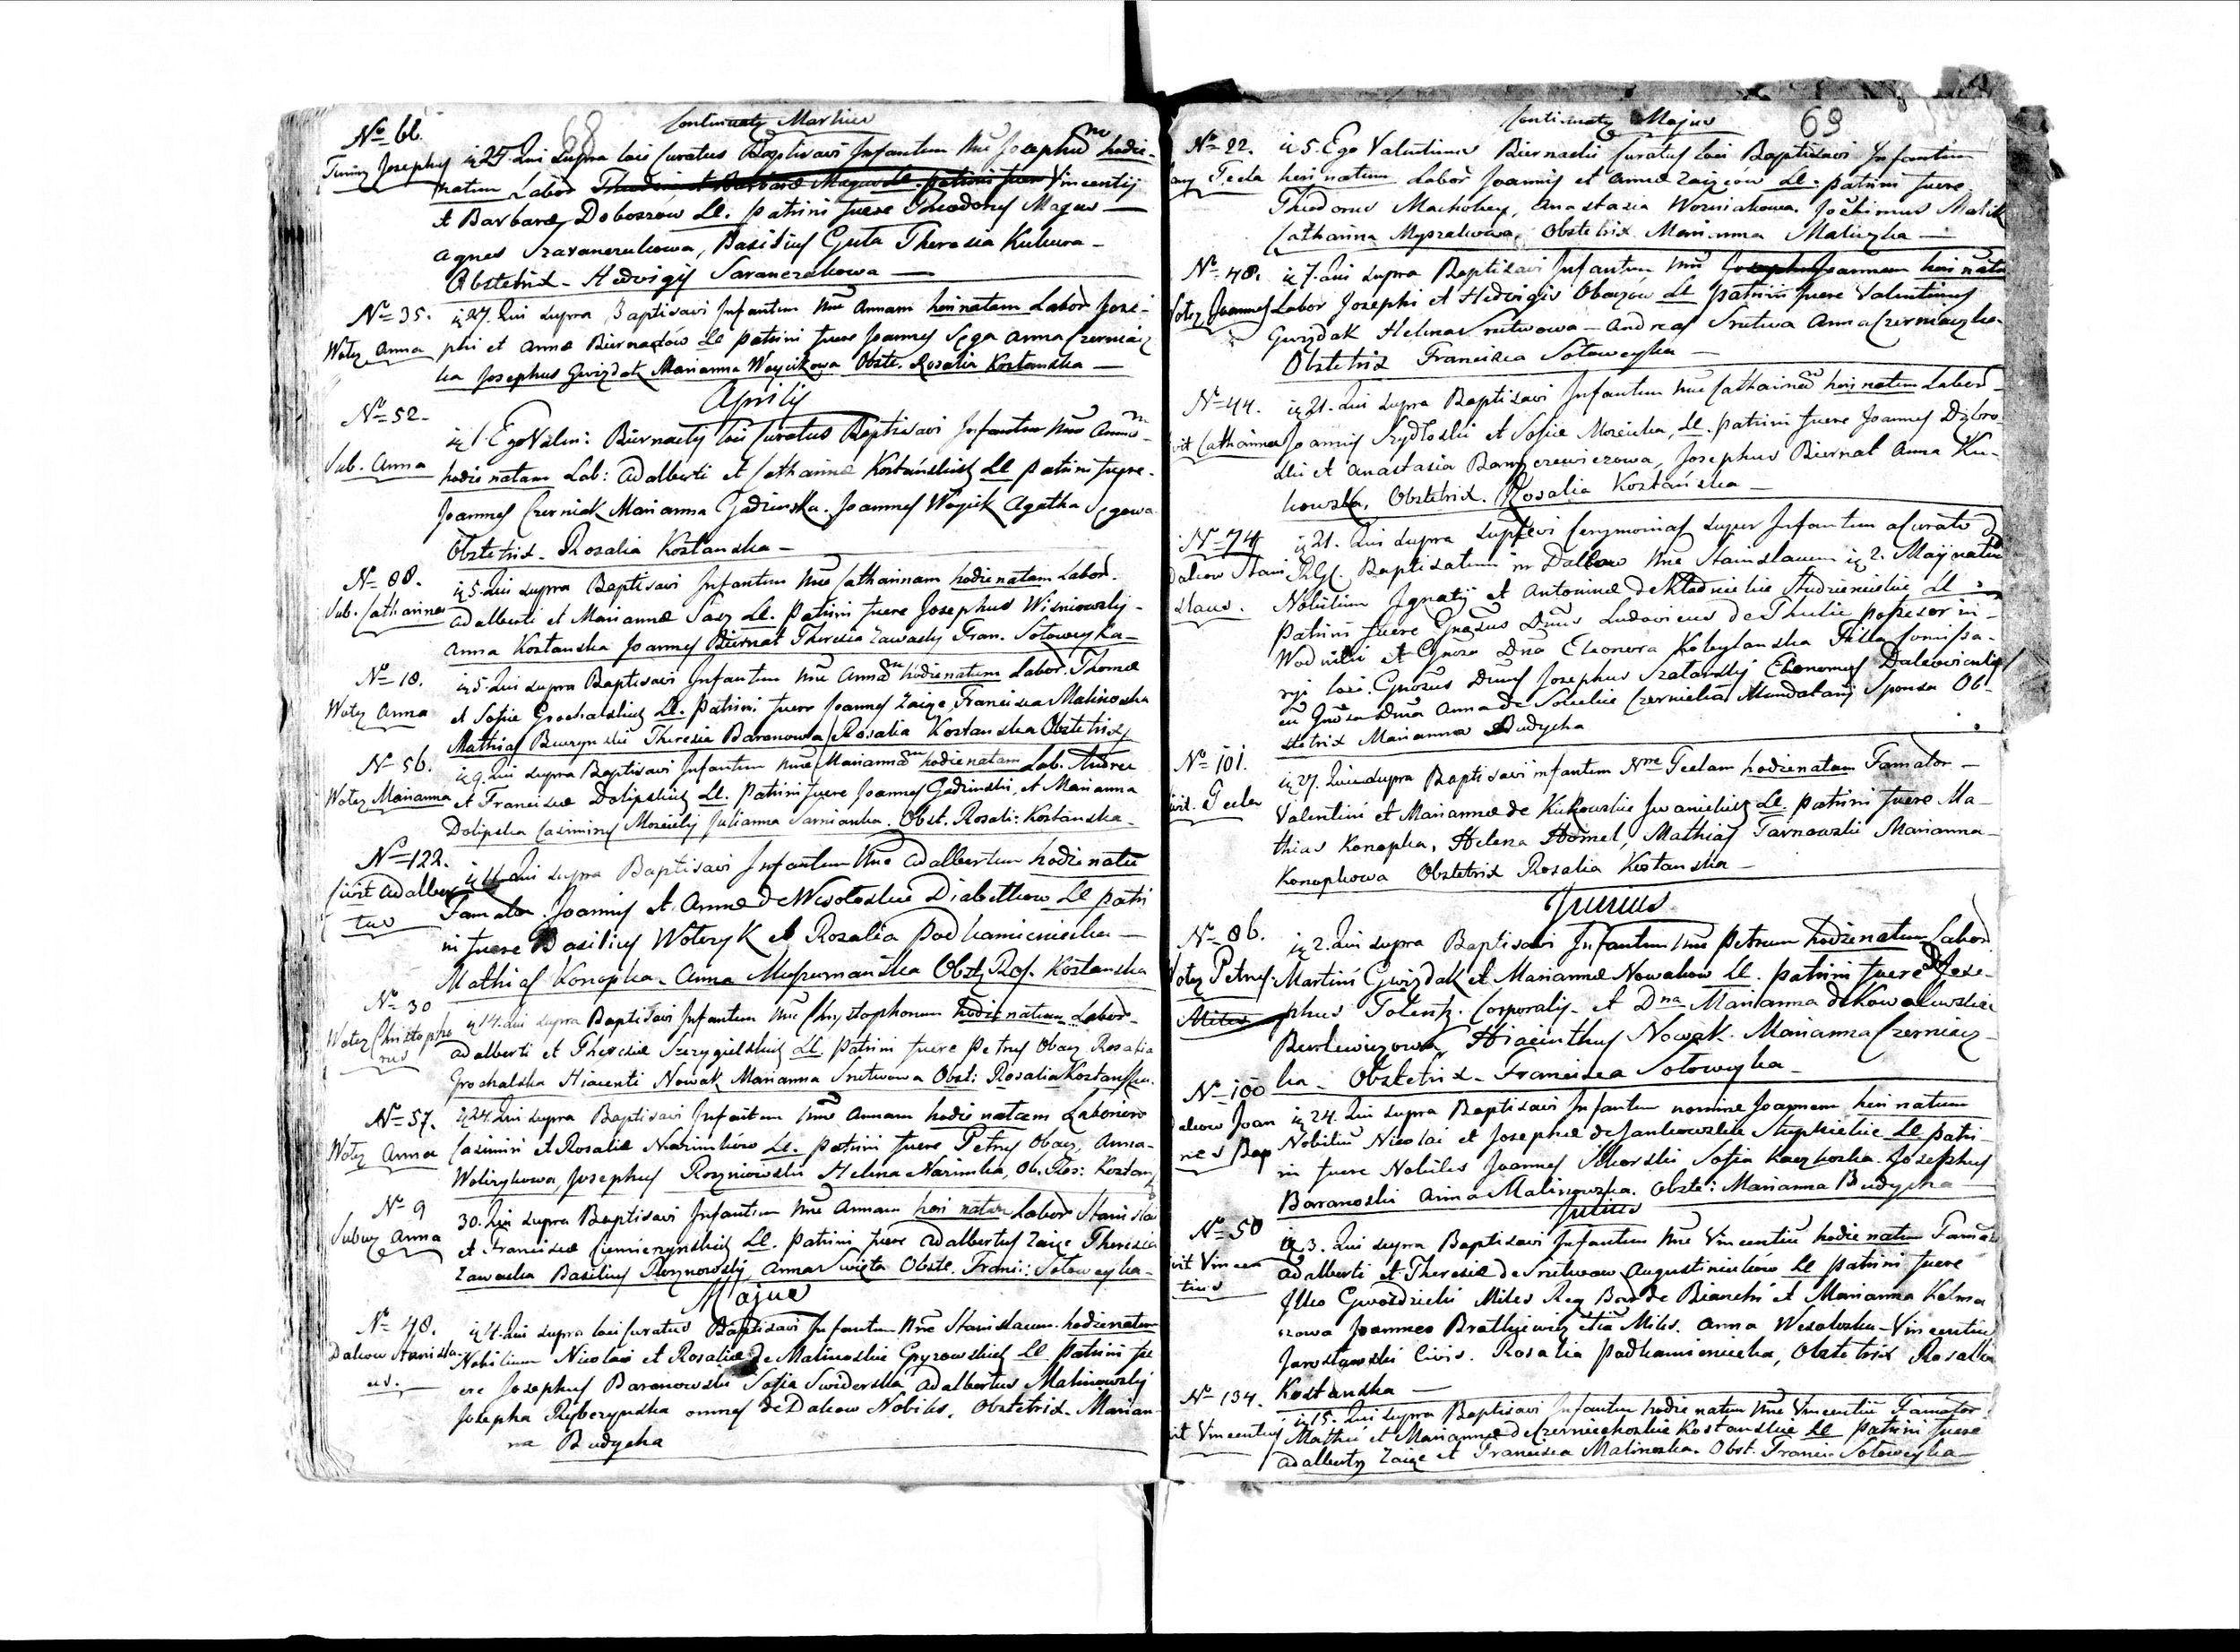 68
Continuaty Martius
No 66.
Josephus
27 Qui supra loci Curatus Baptisavi Infantem Nne Josephum hodie
natum Labor Vincentij
et Barbaræ Doboszów LL. patrini fuere Theodorus Mazur
Agnes Szaranczukowa, Basilius Guta Theresia Kukura
Obstetrix Hedvigis Saranczakowa
No 35.
Anna
27. Qui supra Baptisavi Infantem Nne Annam heri natam Labor Jose-
phi et Annæ Biernaców LL patrini fuere Joannes Sęga Anna Czerniaiz
ka Josephus Gwizdak Marianna Woycikowa Obste. Rosalia Kostanska
Aprilis
No 52
Sub. Anna
1 Ego Valen: Biernacky loci Curatus Baptisavi Infantem Nne Annam
hodie natam Lab: Adalberti et Catharinæ Kostańskich LL patrini fuere
Joannes Czerniak Marianna Gadzinska. Joannes Woycik Agatha Sęgowa
Obstetrix Rosalia Kostanska
No 88.
Sub. Catharina
5. Qui supra Baptisavi Infantem Nne Catharinam hodie natam Labor.
Adalberti et Mariannæ LL. patrini fuere Josephus Wisniowsky
Anna Kostanska Joannes Biernat Theresia Zawasky Fran. Sotoweyka
No 18.
Anna
5. Qui supra Baptisavi Infantem Nne Annam hodie natam Labor. Thomæ
et Sofiæ Grochalskich LL. patrini fuere Joannes Zaięc Francisca Malinoska
Mathias Theresia Baranowska Rosalia Kostanska Obstetrix
No 56.
Marianna
9. Qui supra Baptisavi Infantem Nne Mariannam hodie natam Lab. Andreæ
et Franciscæ Dolipskich LL. patrini fuere Joannes Gadzinski, et Marianna
Dolipska Casimirus Julianna Sarnianka. Obst. Rosali: Kostanska
No 122.
Civit Adalber
tus
11 Qui supra Baptisavi Infantem Nne Adalbertum hodie natu
Famator. Joannis et Annæ de Wesołoskie Diabetkow LL patri
ni fuere Basilius Woterzyk et Rosalia Podkamieniecka
Mathias Konopka Anna Obst. Ros. Kostanska
No 30
Christopho
rus
14. Qui supra Baptisavi Infantem Nne Chrystophorum hodie natum Labor
Adalberti et Theresiæ Szczygielskich LL. patrini fuere Petrus Obacz Rosalia
Grochalska Hiacenti Nowak Marianna Srutwowa Obst: Rosalia Kostanska
No 57.
Anna
24. Qui supra Baptisavi Infantem Nne Annam hodie natam Laborioso
Casimiri et Rosaliæ LL. patrini fuere Petrus Obacz, Anna
Josephus Rozniowski Helena Narimka, Ob. Ros: Kostans
No 9
Anna
30. Qui supra Baptisavi Infantem Nne Annam heri natam Labor Stanislai
et Franciscæ LL. patrini fuere Adalbertus Zaięc Theresia
Zawaska Basilius Roznowsky, Anna Swięta Obste. Franci: Sotoweyka
Majus
No 48.
Daliow Stanisla
us.
4. Qui supra loci Curatus Baptisavi Infantem Nne Stanislaum hodie natum
Nobilium Nicolai et Rosaliæ de Malinoskie LL. patrini fu
ere Josephus Baranowski Sofia Swiderska Adalbertus Malinowsky
Josepha Ryberzynska omnes de Daliow Nobiles. Obstetrix Marian
na Budycka
69
Continuaty Majus
No 22.
Tecla
5. Ego Valentinus Biernacki Curatus loci Baptisavi Infantem
heri natam Labor Joannis et Annæ Zaięców LL. patrini fuere
Theodorus Anastasia Wozniakowa. Jochimus Malik
Catharina Obstetrix Marianna Maliczka
No 40.
Joannes
7. Qui supra Baptisavi Infantem Nne Joannem heri natu
Labor Josephi et Hedvigis Obaczów LL patrini fuere Valentinus
Gwizdak Helena Srutwowa Andreas Srutwa Anna Czerniaczka
Obstetrix Francisca Sotoweyka
No 44.
Catharina
21. Qui supra Baptisavi Infantem Nne Catharinam heri natam Labor
Joannis Szydłoski et Sofiæ Mozicka, LL. patrini fuere Joannes Dąbro
ski et Anastasia Josephus Biernat Anna Ku-
kowska, Obstetrix. Rosalia Kostańska
No 74
Daliow Stani
slaus.
21. Qui supra Suplevi Ceremonias super Infantem a Curato
Baptisatum in Daliow Nne Stanislaum 2. Maij natum
Nobilium Ignatij et Antoninæ de LL
patrini fuere Gnosus Dnus Ludovicus de Thulie possesor in
Wodniki et Gnosa Dna Eleonora Filia Comissa-
rij loci. Gnosus Dnus Josephus Szalansky Economus
cu Gnosa Dna Anna de Czernicka Mandatarij Sponsa Ob-
stetrix Marianna Budycka
No 101.
Civit. Tecla
27. Qui supra Baptisavi infantem Nne Teclam hodie natam Famator
Valentini et Mariannæ de Kukowskie Iwanickich LL. patrini fuere Ma-
thias Konopka, Helena Homel, Mathias Tarnowski Marianna
Konopkowa Obstetrix Rosalia Kostanska
Junius
No 86.
Petrus
2. Qui supra Baptisavi Infantem Nne Petrum hodie natum Labor
Martini Gwizdak et Mariannæ Nowakow LL. patrini fuere Jose-
phus Corporalis et Dna Marianna de Kowalewskie
Hiacinthus Nowak. Marianna Czerniacz
ka Obstetrix Francisca Sotoweyka
No 100
Joan
nes Bap
24. Qui supra Baptisavi Infantem nomine Joannem heri natum
Nobiliu Nicolai et Josephæ de Jankowskie Stupnickie LL patri-
ni fuere Nobiles Joannes Sikorski Sofia Josephus
Baranoski Anna Malinowska. Obste: Marianna Budycka
Julius
No 50
Vincen
tius
3. Qui supra Baptisavi Infantem Nne Vincentiu hodie natum Famat
Adalberti et Theresiæ de Srutwow Augustiniuków LL patrini fuere
Ilko Gwozdzicki Miles Reg Bar de Bianchi et Marianna Kelma
szowa Joannes Brathiewicz etia Miles. Anna Wesołoska Vincentius
Jarosławski Civis. Rosalia Podkamieniecka, Obstetrix Rosalia
Kostanska
No 134.
Vincentius
15. Qui supra Baptisavi Infantem hodie natum Nne Vincentiu Famator
Mathiæ et Mariannæ de Czerniechoskie Kostanskie LL patrini fuere
Adalbertus Zaięc et Francisca Malinoska. Obst. Franci Sotoweyka